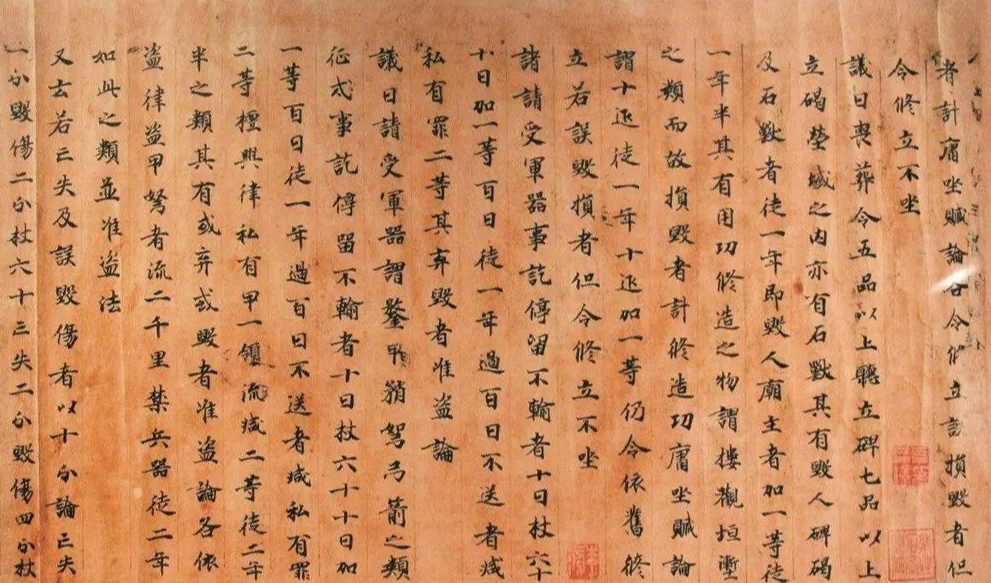 者計庸坐贓論各令修立誤損毀者但
令修立不坐
議曰喪葬令五品以上聽立碑七品以上
立碣塋域之內亦有石獸其有毀人碑碣
及石獸者徒一年即毀人廟主者加一等徒
一年半其有用功修造之物謂樓觀垣壍
之類而故損毀者計修造功庸坐贓論
謂十疋徒一年十疋加一等仍令依舊修
立若誤毀損者但令修立不坐
諸請受軍器事訖停留不輸者十日杖六十
十日加一等百日徒一年過百日不送者減
私有罪二等其弃毀者准盜論
議曰諸受軍器謂鍪甲矟弩弓箭之類
征戒事訖停留不輸者十日杖六十十日加
一等百日徒一年過百日不送者減私有罪
二等擅興律私有甲一領流減二等徒二年
半之類其有或弃或毀者准盜論各依
盜律盜甲弩者流二千里禁兵器徒二年
如此之類並准盜法
又云若亡失及誤毀傷者以十分論亡失
一分毀傷二分杖六十亡失二分毀傷四分杖